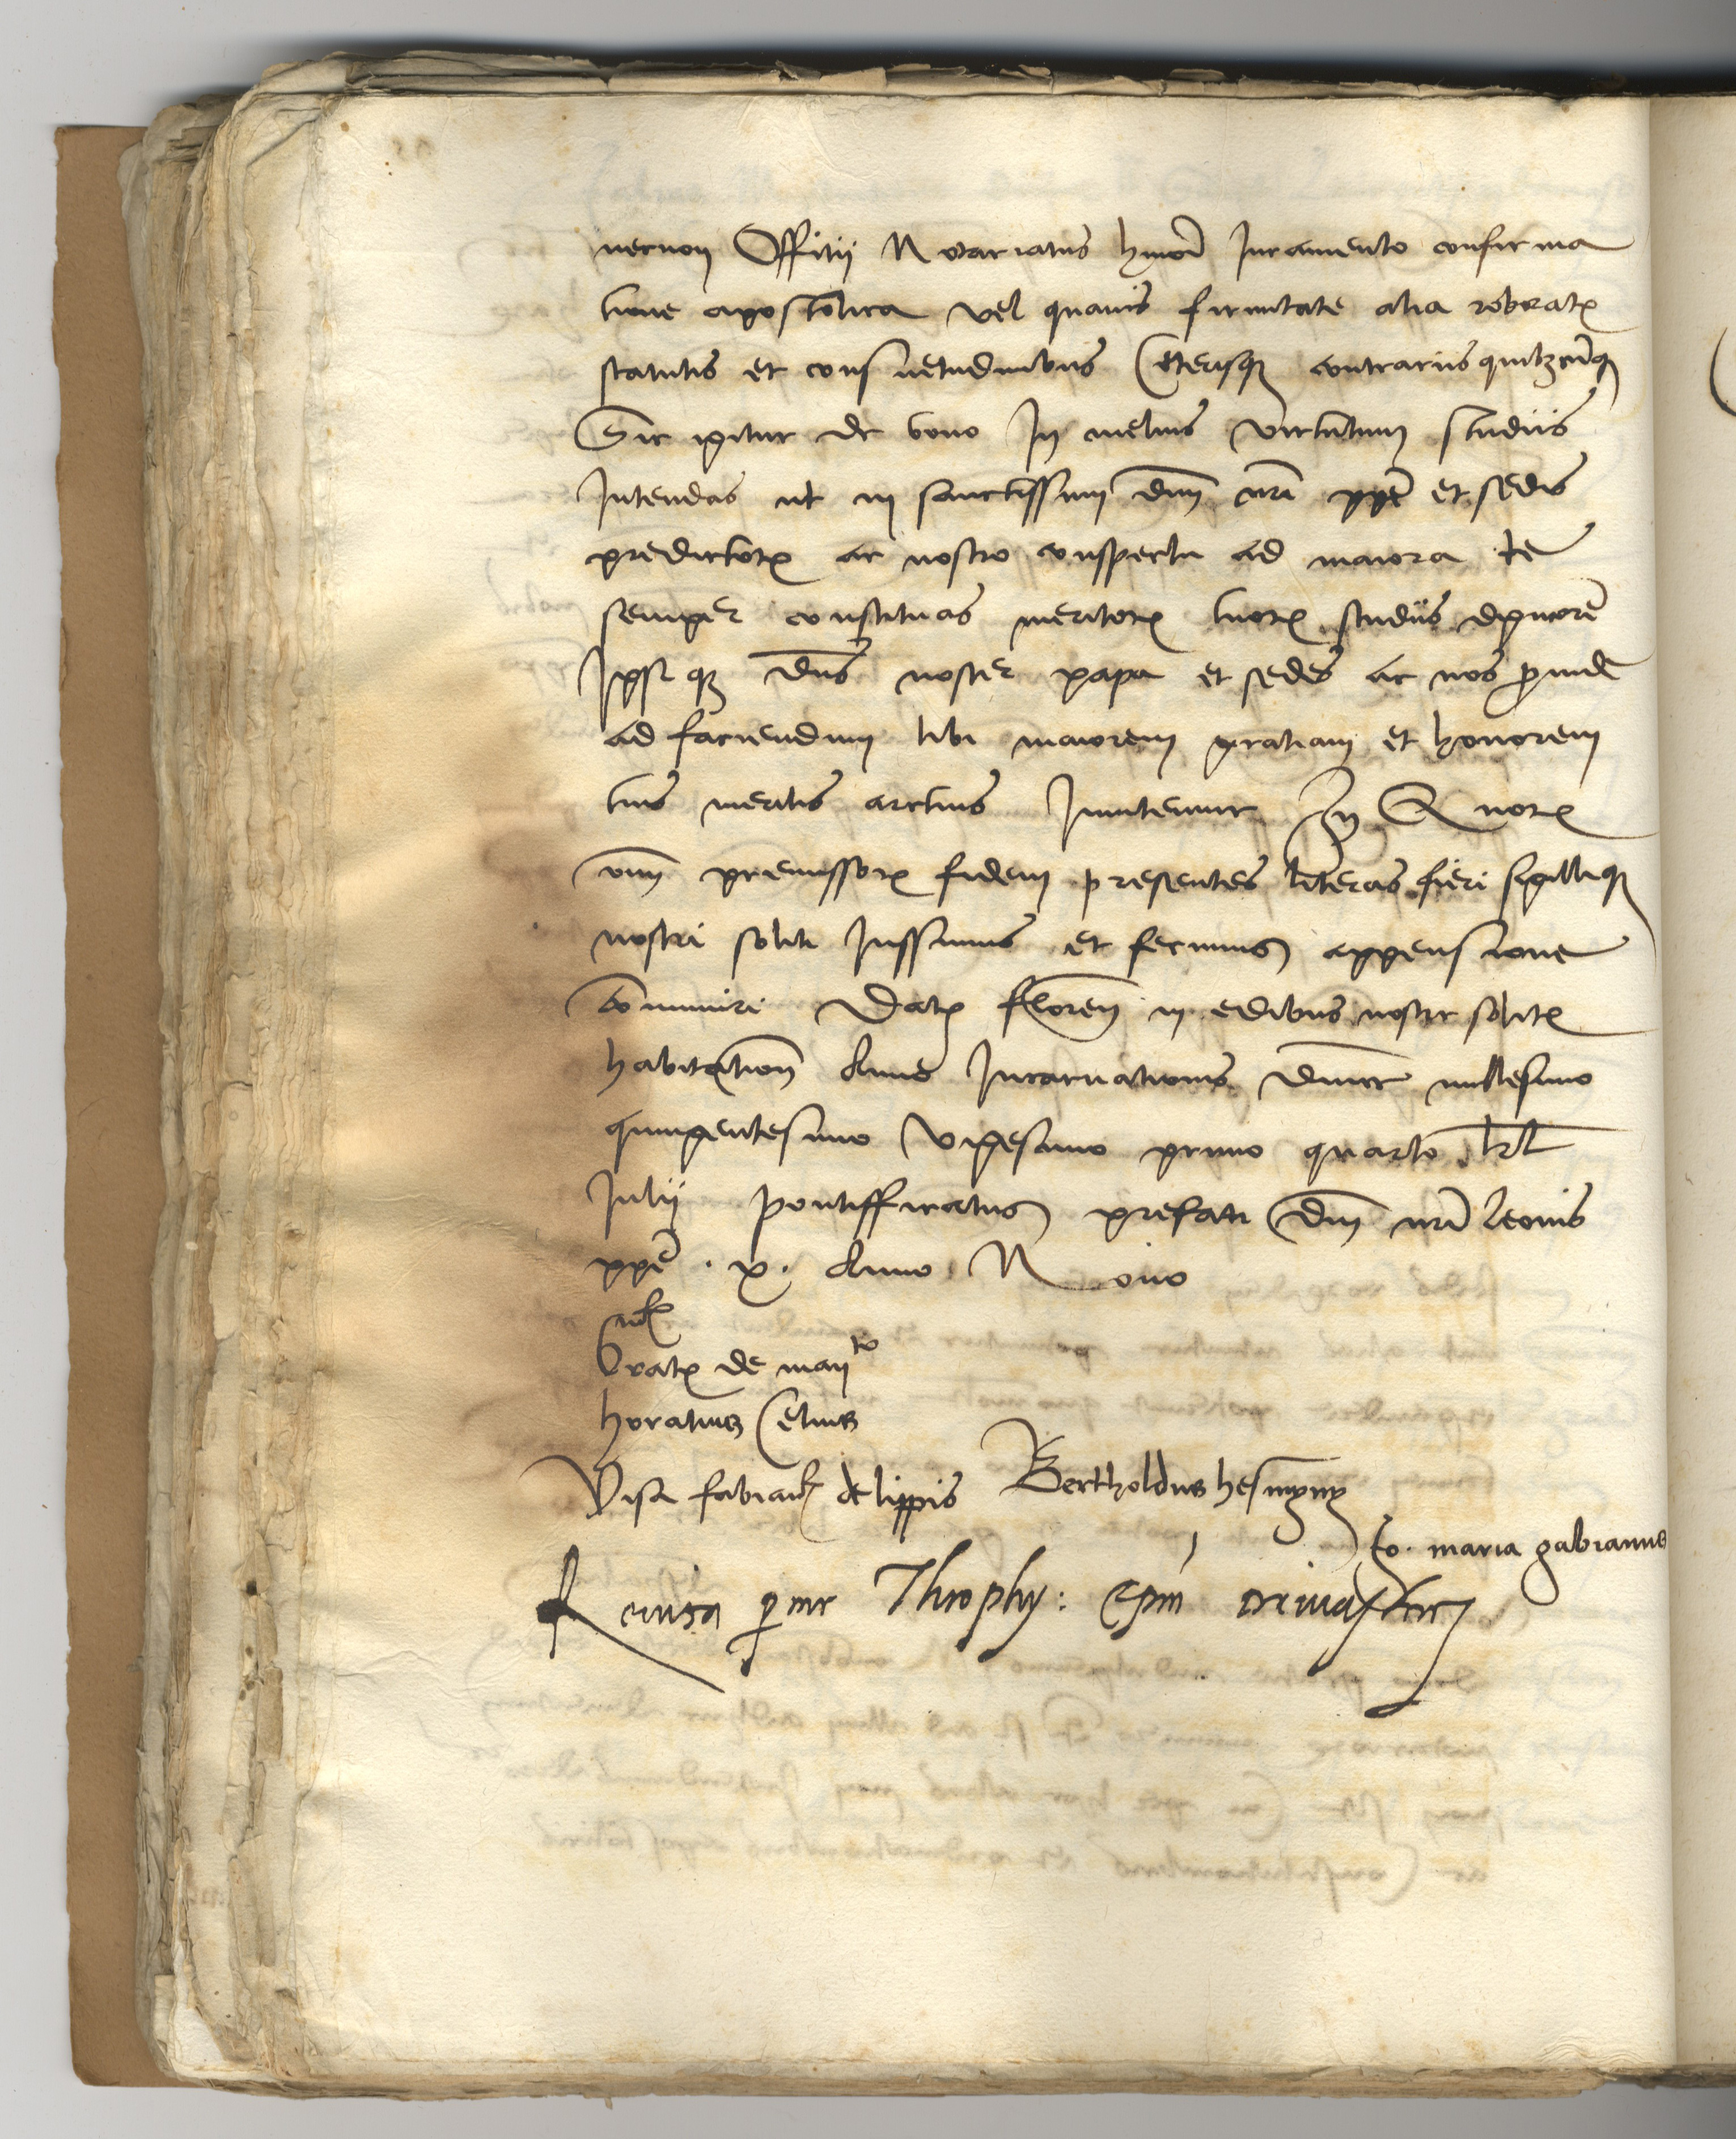 necnon Offitij Notariatus hmoi Juramento confirma
tione apostolica vel quavis firmitate alia roborat
statutis et consuetudinibus Ceterisq contrariis quibzcuq
Sic igitur de bono In melius virtutum studiis
Intendas ut in sanctissimi dni nri ppe et sedis
predictor ac nostro conspectu ad maiora te
semper constituas meritor tuor studiis digniore
Ipseq dns noster papa et sedes ac nos proinde
ad faciendum tibi maiorem gratiam et honorem
tuis meritis arctius Invitemur In Quor
oim premissor fidem presentes literas fieri sigilliq
nostri soliti Jussimus et fecimus appensione
comuniri Dat floren in edibus nostre solite
habitation Anno Incarnationis dnice millesimo
quingentesimo vigesimo primo quarto kl
Julij pontifficatus prefati dni nri Leonis
ppe . x. Anno Nono
Grat de man to
horatius Celius
Visa fabian de lippis Bertholdus
Jo. maria gabianus
Revisa p me Theophy: Epm